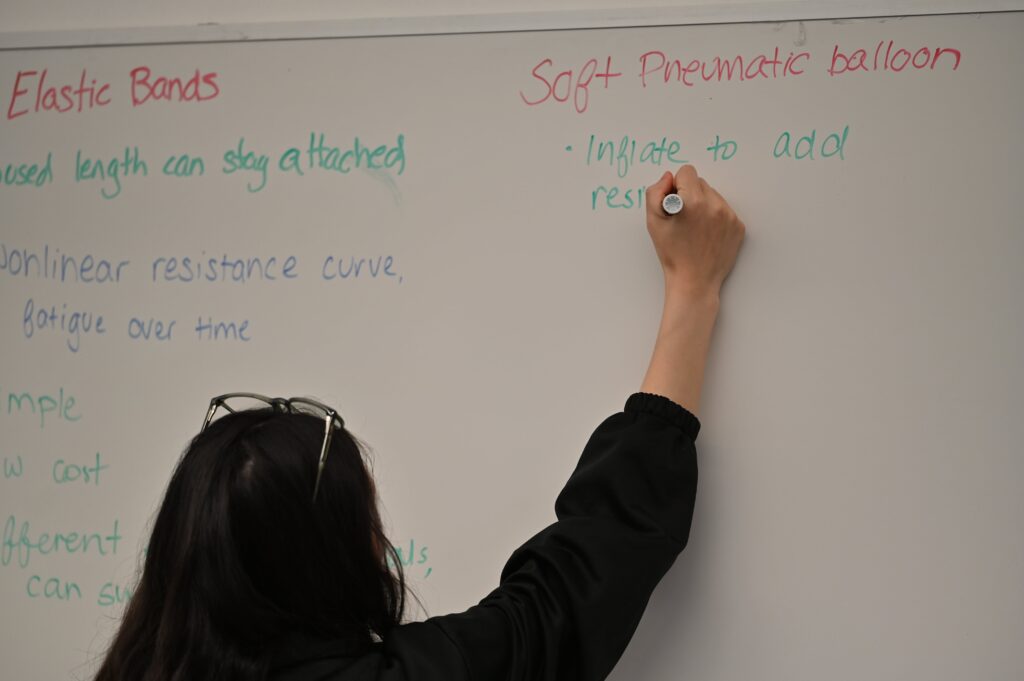 Elastic Bands
length can stay attached
Nonlinear resistance curve,
fatigue over time
cost
can
Soft Pneumatic balloon
• Inflate to add